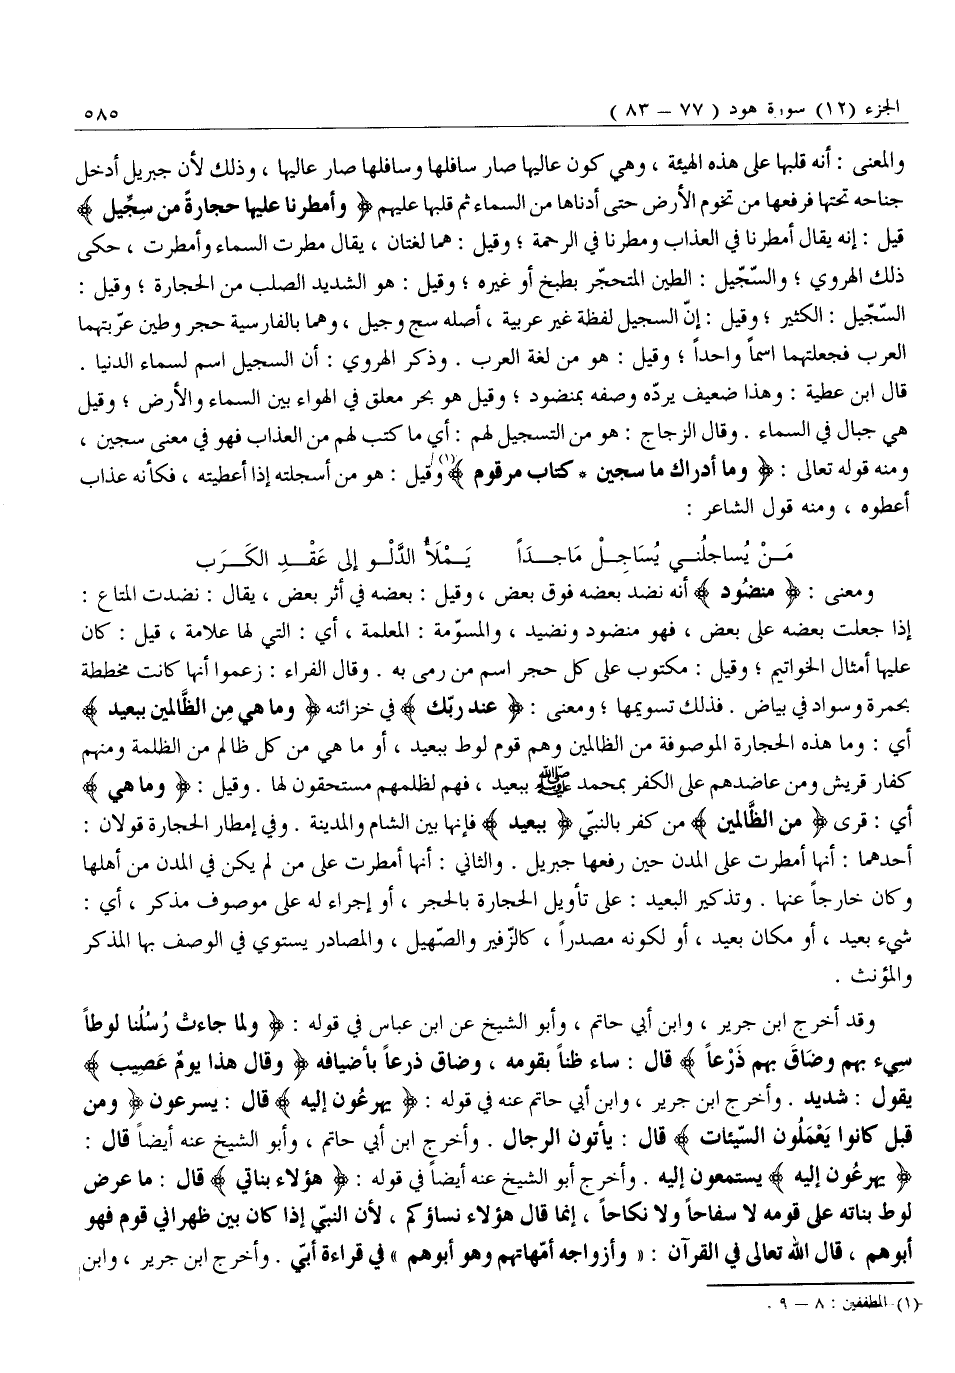 الجزء (١٢) سورة هود ( ٧٧ – ٨٣ ) ٥٨٥
والمعنى : أنه قلبها على هذه الهيئة ، وهي كون عاليها صار سافلها وسافلها صار عاليها ، وذلك لأن جبريل أدخل
جناحه تحتها فرفعها من تخوم الأرض حتى أدناها من السماء ثم قلبها عليهم ﴿ وأمطرنا عليها حجارةً من سِجِّيل ﴾
قيل : إنه يقال أمطرنا في العذاب ومطرنا في الرحمة ؛ وقيل : هما لغتان ، يقال مطرت السماء وأمطرت ، حكى
ذلك الهروي ؛ والسّجّيل : الطين المتحجّر بطبخ أو غيره ؛ وقيل : هو الشديد الصلب من الحجارة ؛ وقيل :
السّجّيل : الكثير ؛ وقيل : إنّ السجيل لفظة غير عربية ، أصله سج وجيل ، وهما بالفارسية حجر وطين عرّبتهما
العرب فجعلتهما اسماً واحداً ؛ وقيل : هو من لغة العرب . وذكر الهروي : أن السجيل اسم لسماء الدنيا .
قال ابن عطية : وهذا ضعيف يردّه وصفه بمنضود ؛ وقيل هو بحر معلق في الهواء بين السماء والأرض ؛ وقيل
هي جبال في السماء . وقال الزجاج : هو من التسجيل لهم : أي ما كتب لهم من العذاب فهو في معنى سجين ،
ومنه قوله تعالى : ﴿ وما أدراك ما سجين * كتاب مرقوم ﴾(١) وقيل : هو من أسجلته إذا أعطيته ، فكأنه عذاب
أعطوه ، ومنه قول الشاعر :
مَـنْ يُساجلُنـي يُسَاجِـلْ مَاجـداً يَـمْلَأُ الدَّلْـو إلى عَقْـدِ الكَـرَب
ومعنى : ﴿ منضُود ﴾ أنه نضد بعضه فوق بعض ، وقيل : بعضه في أثر بعض ، يقال : نضدت المتاع :
إذا جعلت بعضه على بعض ، فهو منضود ونضيد ، والمسوّمة : المعلمة ، أي : التي لها علامة ، قيل : كان
عليها أمثال الخواتيم ؛ وقيل : مكتوب على كل حجر اسم من رمى به . وقال الفراء : زعموا أنها كانت مخططة
بحمرة وسواد في بياض . فذلك تسويمها ؛ ومعنى : ﴿ عند ربّك ﴾ في خزائنه ﴿ وما هي مِن الظَّالمين ببعيد ﴾
أي : وما هذه الحجارة الموصوفة من الظالمين وهم قوم لوط ببعيد ، أو ما هي من كل ظالم من الظلمة ومنهم
كفار قريش ومن عاضدهم على الكفر بمحمد ﷺ ببعيد ، فهم لظلمهم مستحقون لها . وقيل : ﴿ وما هي ﴾
أي : قرى ﴿ من الظَّالمين ﴾ من كفر بالنبيّ ﴿ ببعيد ﴾ فإنها بين الشام والمدينة . وفي إمطار الحجارة قولان :
أحدهما : أنها أمطرت على المدن حين رفعها جبريل . والثاني : أنها أمطرت على من لم يكن في المدن من أهلها
وكان خارجاً عنها . وتذكير البعيد : على تأويل الحجارة بالحجر ، أو إجراء له على موصوف مذكر ، أي :
شيء بعيد ، أو مكان بعيد ، أو لكونه مصدراً ، كالزّفير والصّهيل ، والمصادر يستوي في الوصف بها المذكر
والمؤنث .
وقد أخرج ابن جرير ، وابن أبي حاتم ، وأبو الشيخ عن ابن عباس في قوله : ﴿ ولما جاءتْ رُسُلُنا لوطاً
سِيء بهم وضَاقَ بهم ذَرْعاً ﴾ قال : ساء ظناً بقومه ، وضاق ذرعاً بأضيافه ﴿ وقال هذا يومٌ عَصِيب ﴾
يقول : شديد . وأخرج ابن جرير ، وابن أبي حاتم عنه في قوله : ﴿ يهرعُون إليه ﴾ قال : يسرعون ﴿ ومن
قبل كانوا يَعْمَلُون السّيئات ﴾ قال : يأتون الرجال . وأخرج ابن أبي حاتم ، وأبو الشيخ عنه أيضاً قال :
﴿ يهرعُون إليه ﴾ يستمعون إليه . وأخرج أبو الشيخ عنه أيضاً في قوله : ﴿ هؤلاء بناتي ﴾ قال : ما عرض
لوط بناته على قومه لا سفاحاً ولا نكاحاً ، إنما قال هؤلاء نساؤكم ، لأن النبيّ إذا كان بين ظهراني قوم فهو
أبوهم ، قال الله تعالى في القرآن : « وأزواجه أمّهاتهم وهو أبوهم » في قراءة أبيّ . وأخرج ابن جرير ، وابن
(١) المطففين : ٨ – ٩ .